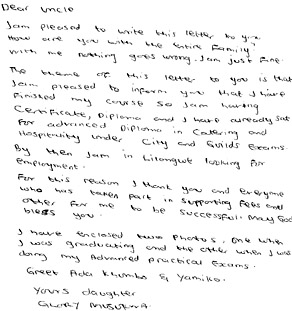 Dear Uncle
Jam pleased to write this letter to you
How are you with the entire Family
with me nothing goes wrong. Jam just fine.
The theme of this letter to you is that
Jam pleased to inform you that I have
Finished my course so Jam having
Certificate, Diploma and I have already sat
For advanced Diploma in Catering and
Hospitality under City and Guilds Exams.
By then Jam in Lilongwe looking for
Employment.
For this reason I thank you and Everyone
who has taken part in supporting Fees and
other for me to be successful. May God
bless you.
I have Enclosed two Photos, one when
I was graduating and the other when I was
doing my Advanced practical Exams.
Greet Ada Khumbo & Yamiko.
Yours daughter
Glory